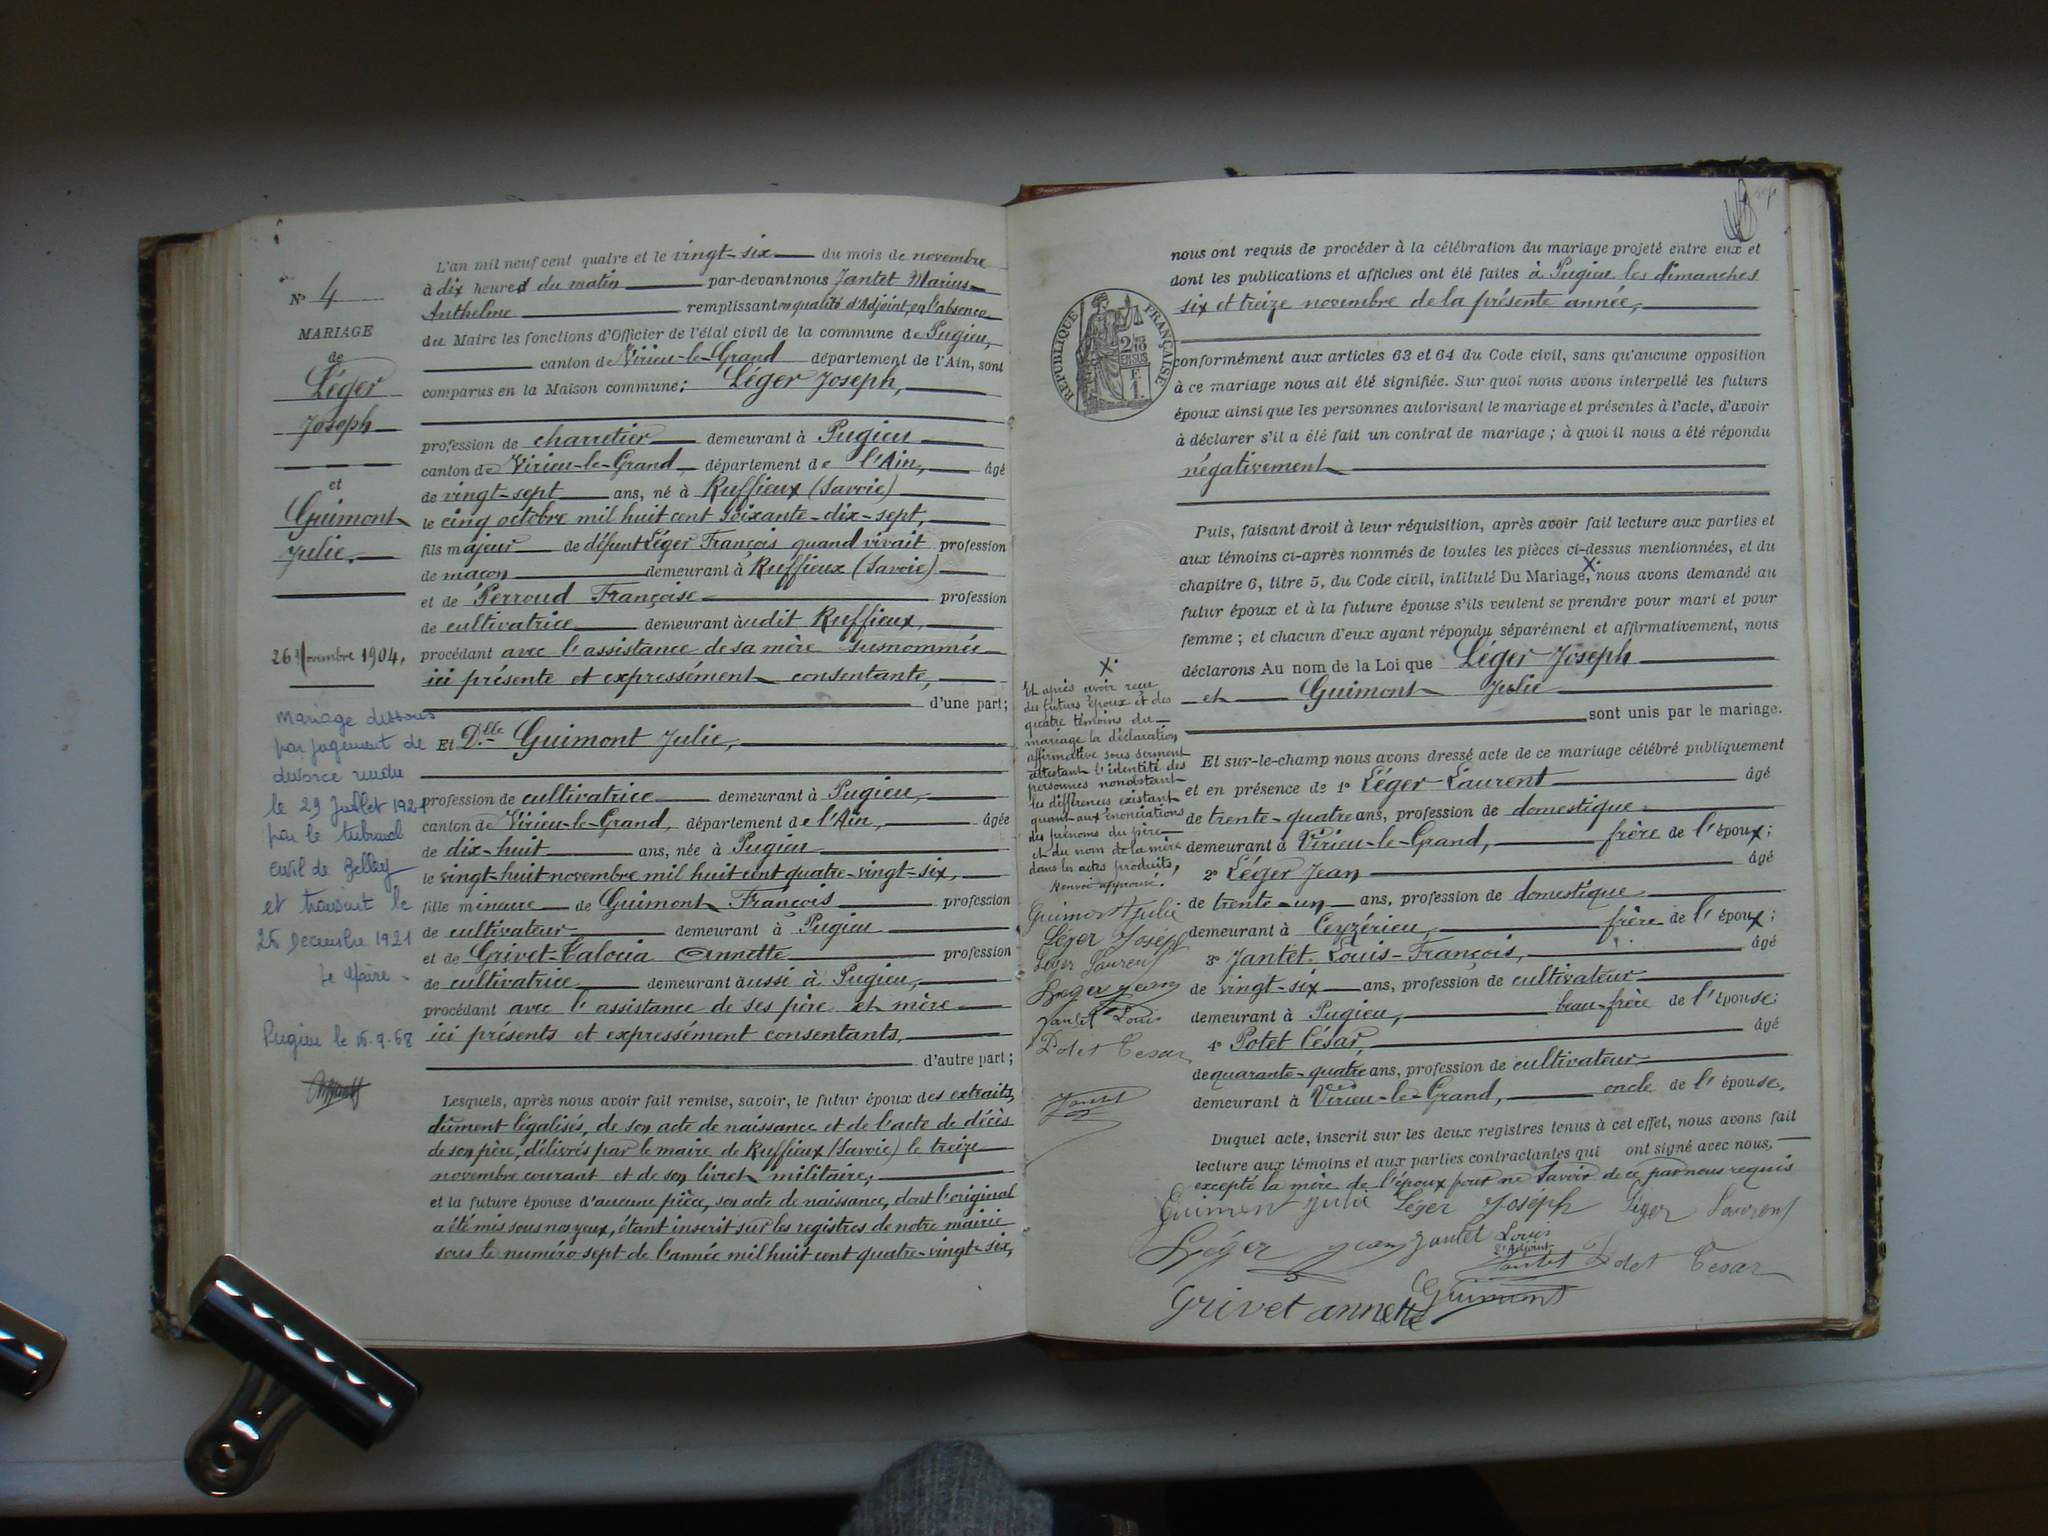 N° 4
MARIAGE
de
Léger
Joseph
et
Guimont
Julie.
26 Novembre 1904.
Mariage dissous
par jugement de
divorce rendu
le 29 Juillet 1921
par le tribunal
civil de Belley
et transcrit le
26 Decembre 1921
Le Maire
Pugieu le 16-9-68
L'an mil neuf cent quatre et le vingt-six du mois de novembre
à dix heures du matin par-devant nous Jantet Marius
Anthelme remplissant en qualité d'Adjoint, en l'absence
du Maire les fonctions d'Officier de l'état civil de la commune de Pugieu,
canton de Virieu-le-Grand département de l'Ain, sont
comparus en la Maison commune; Léger Joseph,
profession de charretier demeurant à Pugieu
canton de Virieu-le-Grand, département de l'Ain, âgé
de vingt-sept ans, né à Ruffieux (Savoie)
le cinq octobre mil huit cent soixante-dix-sept,
fils majeur de défunt Léger François quand vivait profession
de maçon demeurant à Ruffieux (Savoie)
et de Perroud Françoise profession
de cultivatrice demeurant audit Ruffieux,
procédant avec l'assistance de sa mère susnommée
ici présente et expressément consentante,
d'une part;
Et Dlle Guimont Julie,
profession de cultivatrice demeurant à Pugieu,
canton de Virieu-le-Grand, département de l'Ain, âgée
de dix-huit ans, née à Pugieu
le vingt-huit novembre mil huit cent quatre-vingt-six,
fille mineure de Guimont François profession
de cultivateur demeurant à Pugieu
et de Grivet-Talocia Annette profession
de cultivatrice demeurant aussi à Pugieu,
procédant avec l'assistance de ses père et mère
ici présents et expressément consentants,
d'autre part;
Lesquels, après nous avoir fait remise, savoir, le futur époux des extraits,
dûment légalisés, de son acte de naissance et de l'acte de décès
de son père, délivrés par le maire de Ruffieux (Savoie) le treize
novembre courant et de son livret militaire;
et la future épouse d'aucune pièce, son acte de naissance, dont l'original
a été mis sous nos yeux, étant inscrit sur les registres de notre mairie
sous le numéro sept de l'année mil huit cent quatre-vingt-six,
nous ont requis de procéder à la célébration du mariage projeté entre eux et
dont les publications et affiches ont été faites à Pugieu les dimanches
six et treize novembre de la présente année,
RÉPUBLIQUE FRANÇAISE
2/10 EN SUS
F. 1
conformément aux articles 63 et 64 du Code civil, sans qu'aucune opposition
à ce mariage nous ait été signifiée. Sur quoi nous avons interpellé les futurs
époux ainsi que les personnes autorisant le mariage et présentes à l'acte, d'avoir
à déclarer s'il a été fait un contrat de mariage; à quoi il nous a été répondu
négativement
Puis, faisant droit à leur réquisition, après avoir fait lecture aux parties et
aux témoins ci-après nommés de toutes les pièces ci-dessus mentionnées, et du
chapitre 6, titre 5, du Code civil, intitulé Du Mariage, X nous avons demandé au
futur époux et à la future épouse s'ils veulent se prendre pour mari et pour
femme; et chacun d'eux ayant répondu séparément et affirmativement, nous
déclarons Au nom de la Loi que Léger Joseph
et Guimont Julie
sont unis par le mariage.
Et sur-le-champ nous avons dressé acte de ce mariage célébré publiquement
et en présence de 1° Léger Laurent âgé
de trente-quatre ans, profession de domestique
demeurant à Virieu-le-Grand, frère de l'époux;
2° Léger Jean âgé
de trente-un ans, profession de domestique
demeurant à Ceyzérieu, frère de l'époux;
3° Jantet Louis-François, âgé
de vingt-six ans, profession de cultivateur
demeurant à Pugieu, beau-frère de l'épouse;
4° Potet César, âgé
de quarante-quatre ans, profession de cultivateur
demeurant à Virieu-le-Grand, oncle de l'épouse,
Duquel acte, inscrit sur les deux registres tenus à cet effet, nous avons fait
lecture aux témoins et aux parties contractantes qui ont signé avec nous,
excepté la mère de l'époux pour ne savoir de ce par nous requis
Guimont Julie Léger Joseph Léger Laurent
Léger Jean Jantet Louis
2e Adjoint
Jantet Potet Cesar
Guimont
Grivet annette
X
Et après avoir reçu
des futurs époux et des
quatre témoins du
mariage la déclaration
affirmative sous serment
attestant l'identité des
personnes nonobstant
les différences existant
quant aux énonciations
des prénoms du père
et du nom de la mère
dans les actes produits,
Renvoi approuvé.
Guimont Julie
Léger Joseph
Léger Laurent
Leger Jean
Jantet Louis
Potet Cesar
Jantet